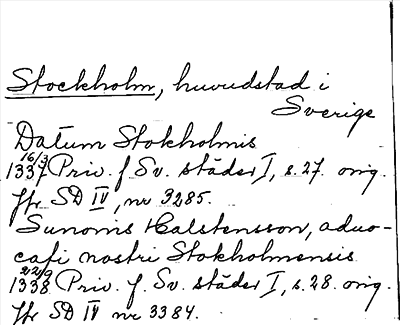 Stockholm, huvudstad i
Sverige
Datum Stokholmis
16/3
1337 Priv. f. Sv. städer I, s. 27. orig.
Jfr SD IV, nr 3285.
Sunonis Halstensson, advo-
cati nostri Stokholmensis
22/9
1338 Priv. f. Sv. städer I, s. 28. orig.
Jfr SD IV nr 3384.